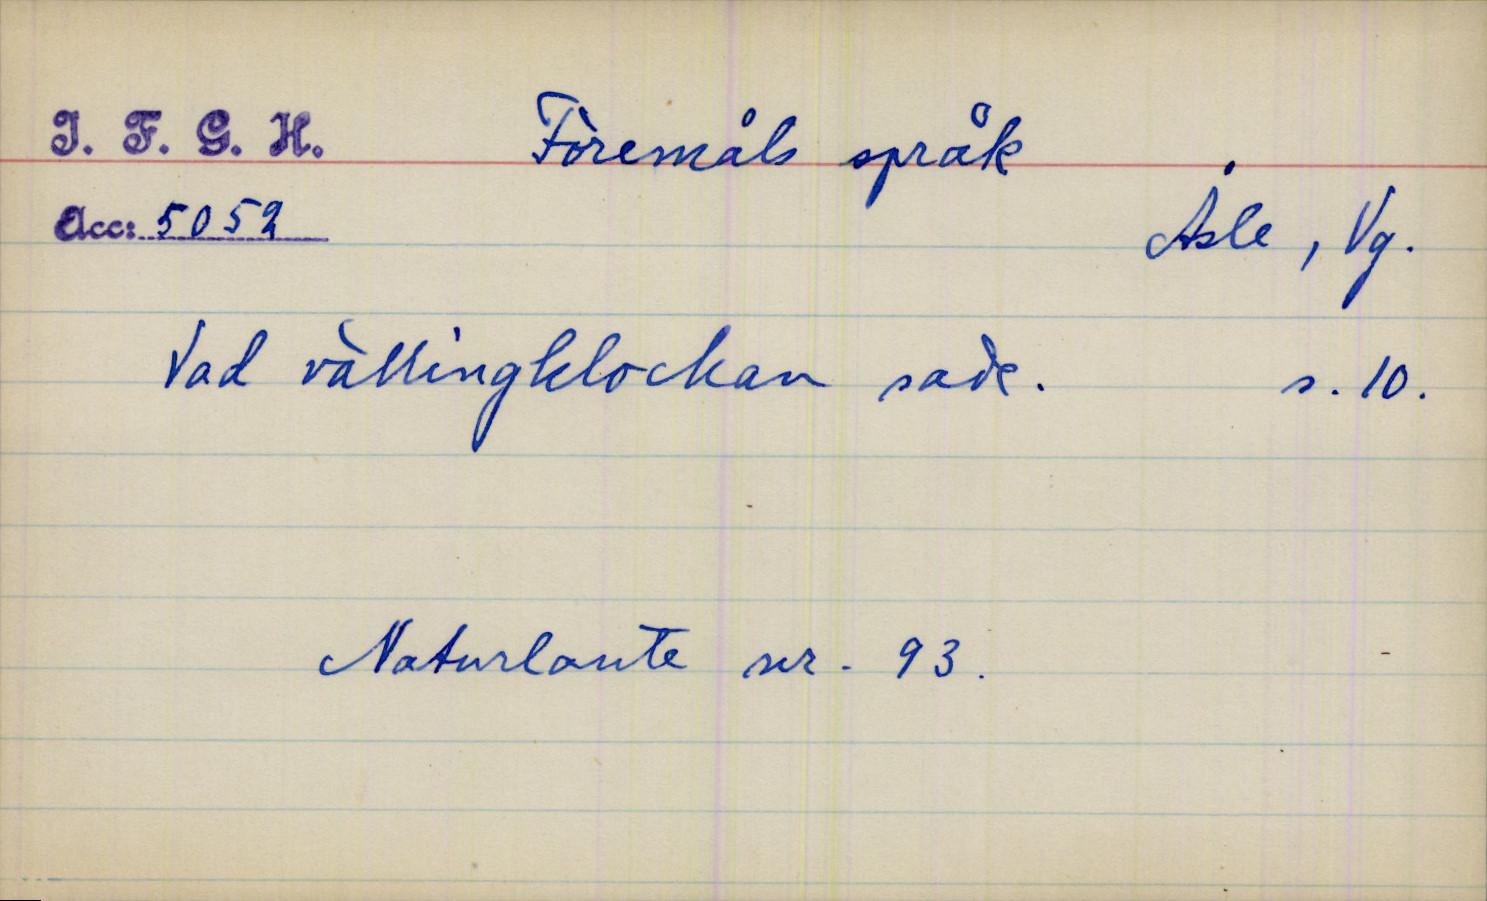 I. F. G. H. Föremåls språk
Acc: 5052 Åsle, Vg.
Vad vällingklockan sade. s. 10.
Naturlaute nr. 93.